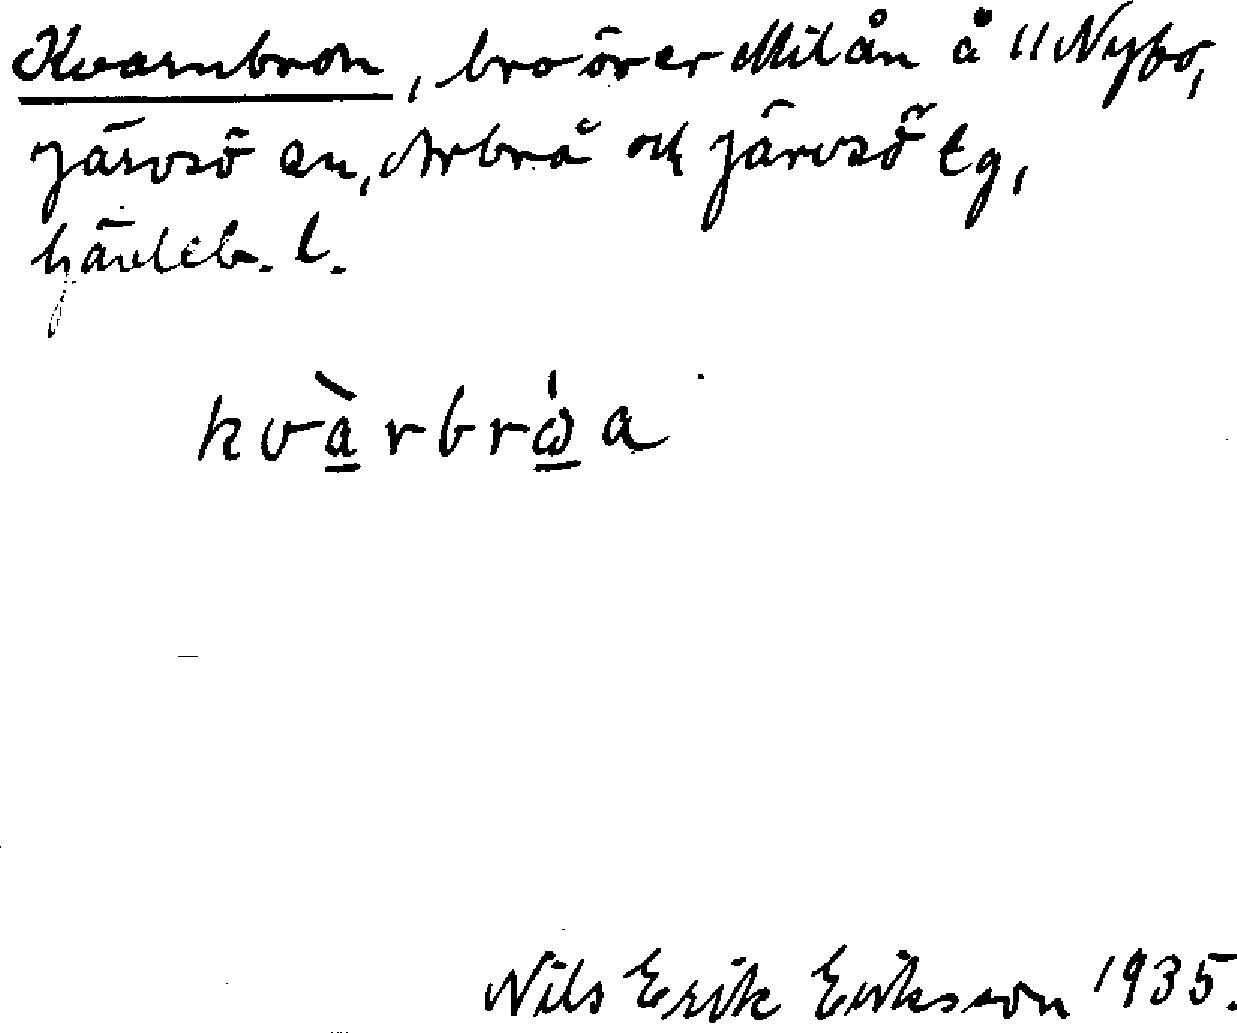 Kvarnbron, bro över Milån å 11 Nybo,
Järvsö sn, Arbrå och Järvsö tg,
Gävleb. l.
kvàrbrω̍a
Nils Erik Eriksson 1935.